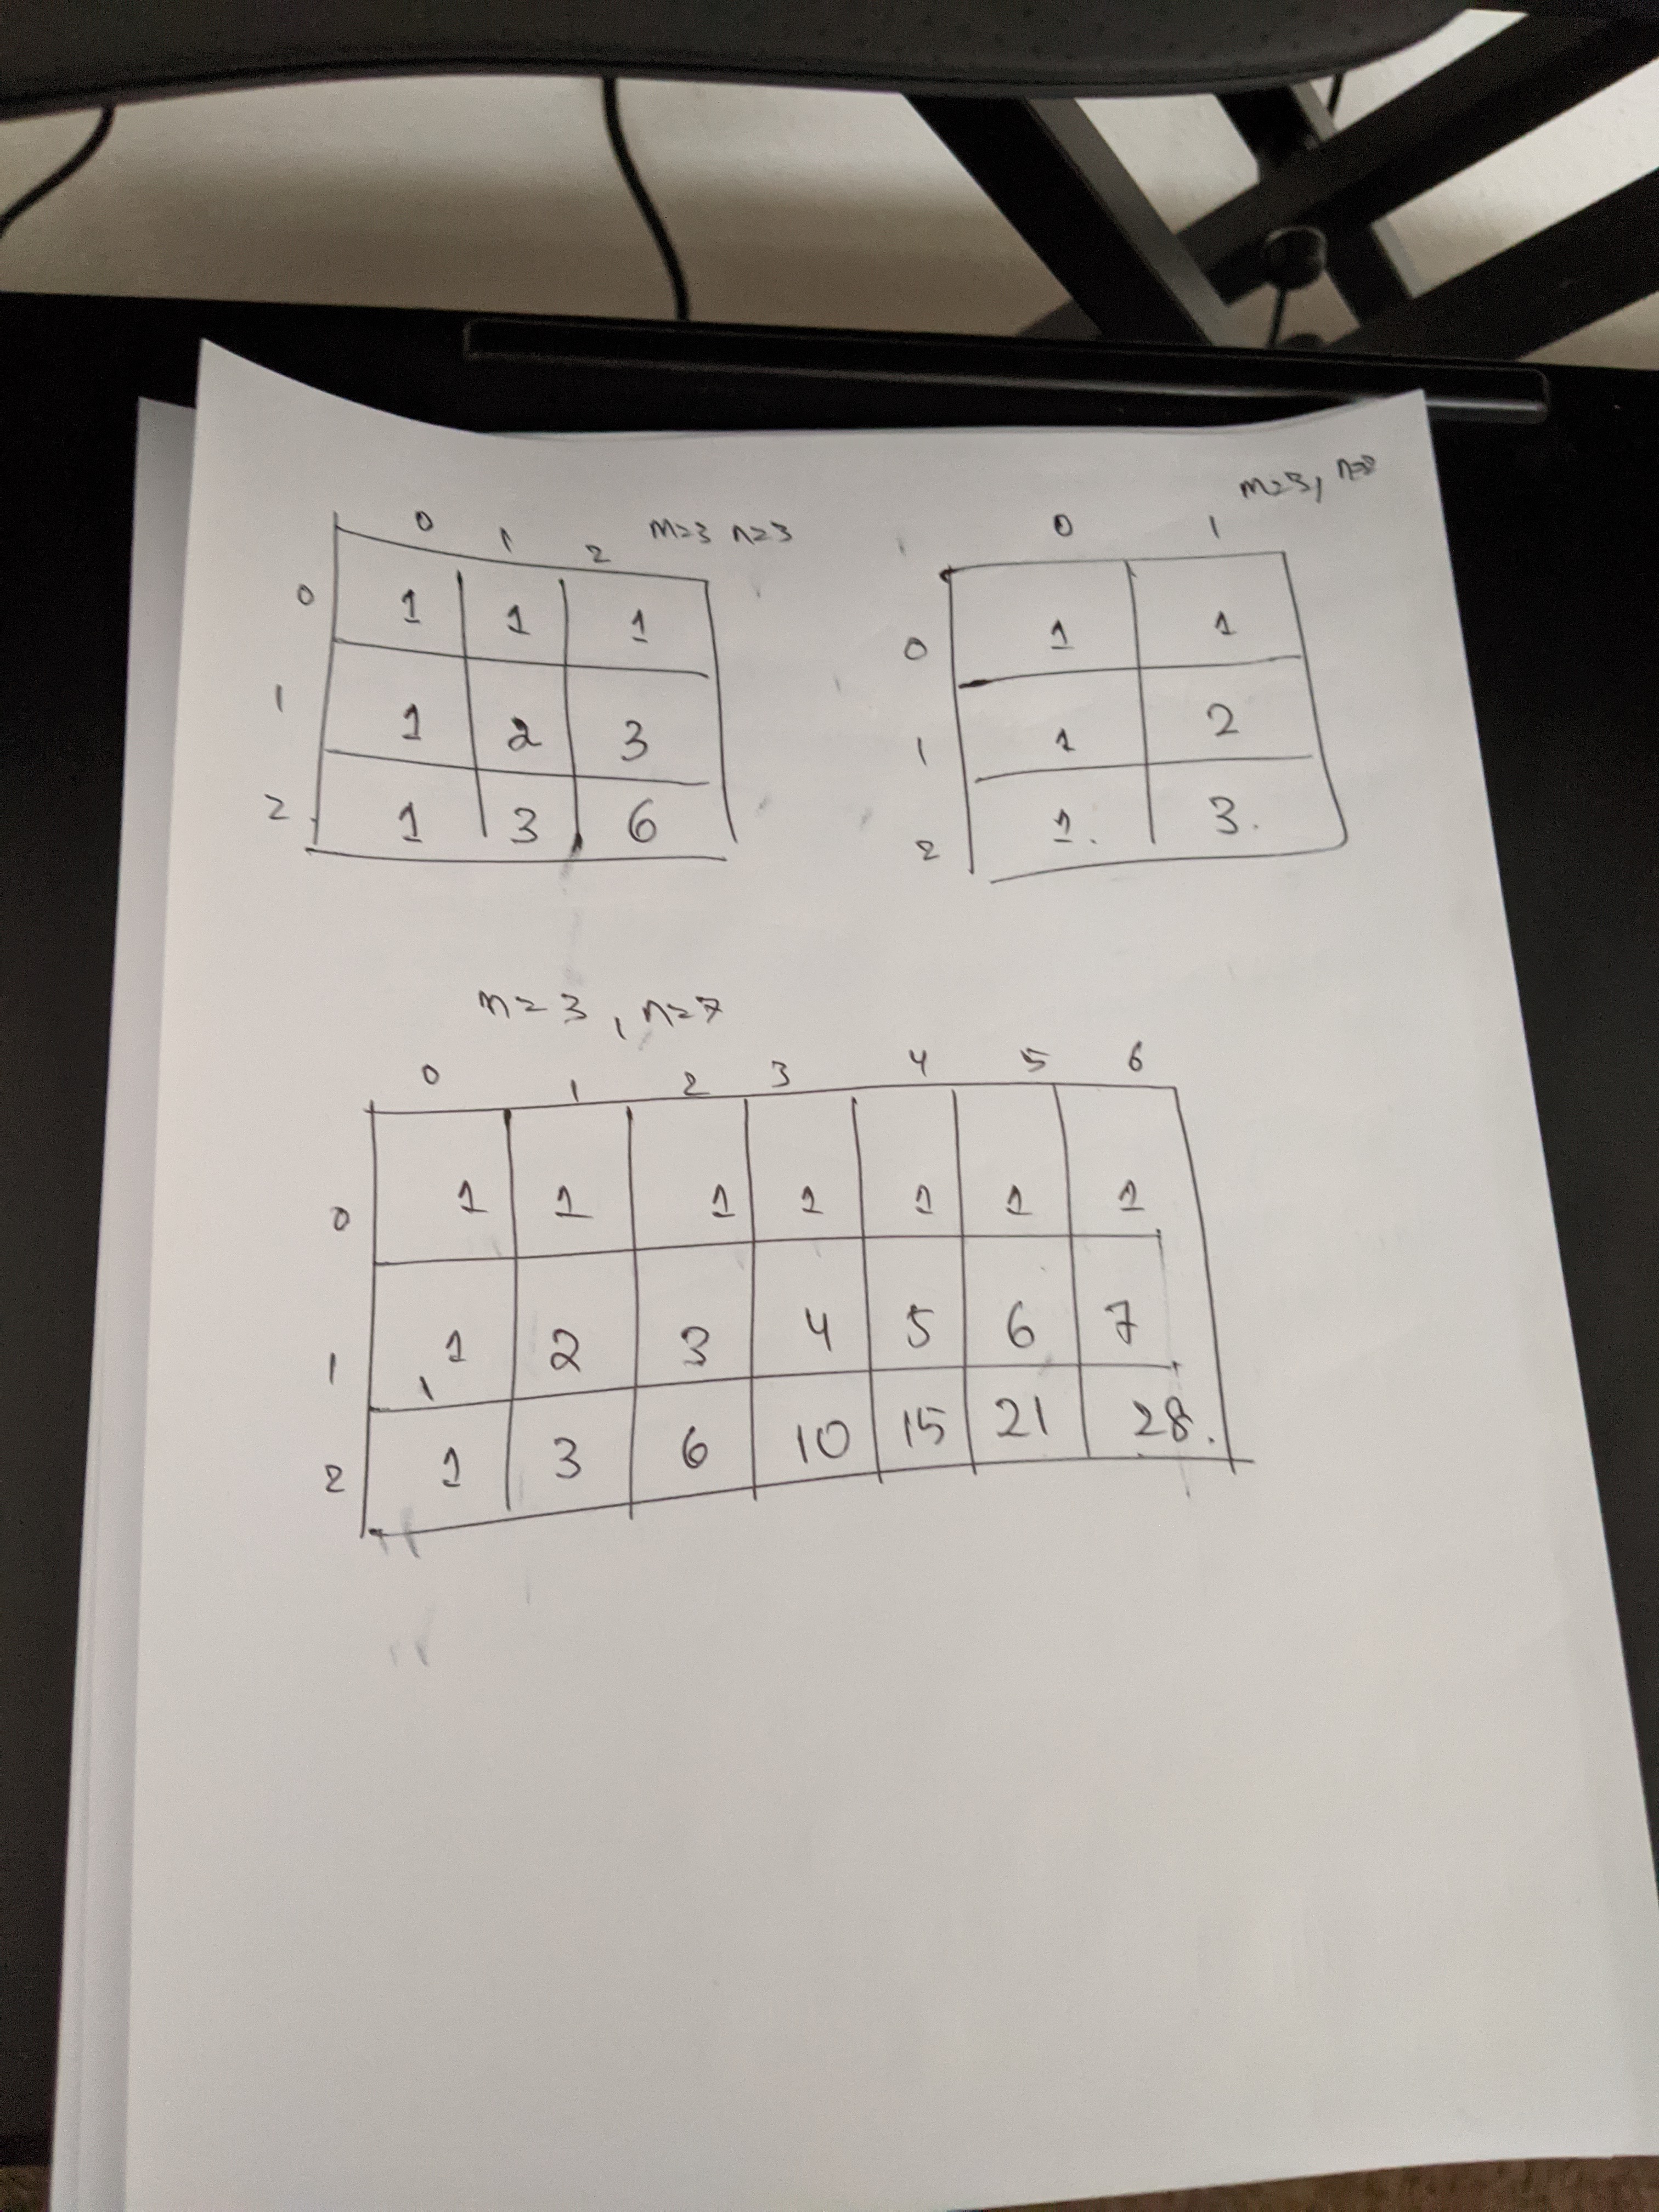 m=3 n=3
0 1 2
0 1 1 1
1 1 2 3
2 1 3 6
m=3, n=2
0 1
0 1 1
1 1 2
2 1. 3.
m=3, n=7
0 1 2 3 4 5 6
0 1 1 1 1 1 1 1
1 1 2 3 4 5 6 7
2 1 3 6 10 15 21 28.